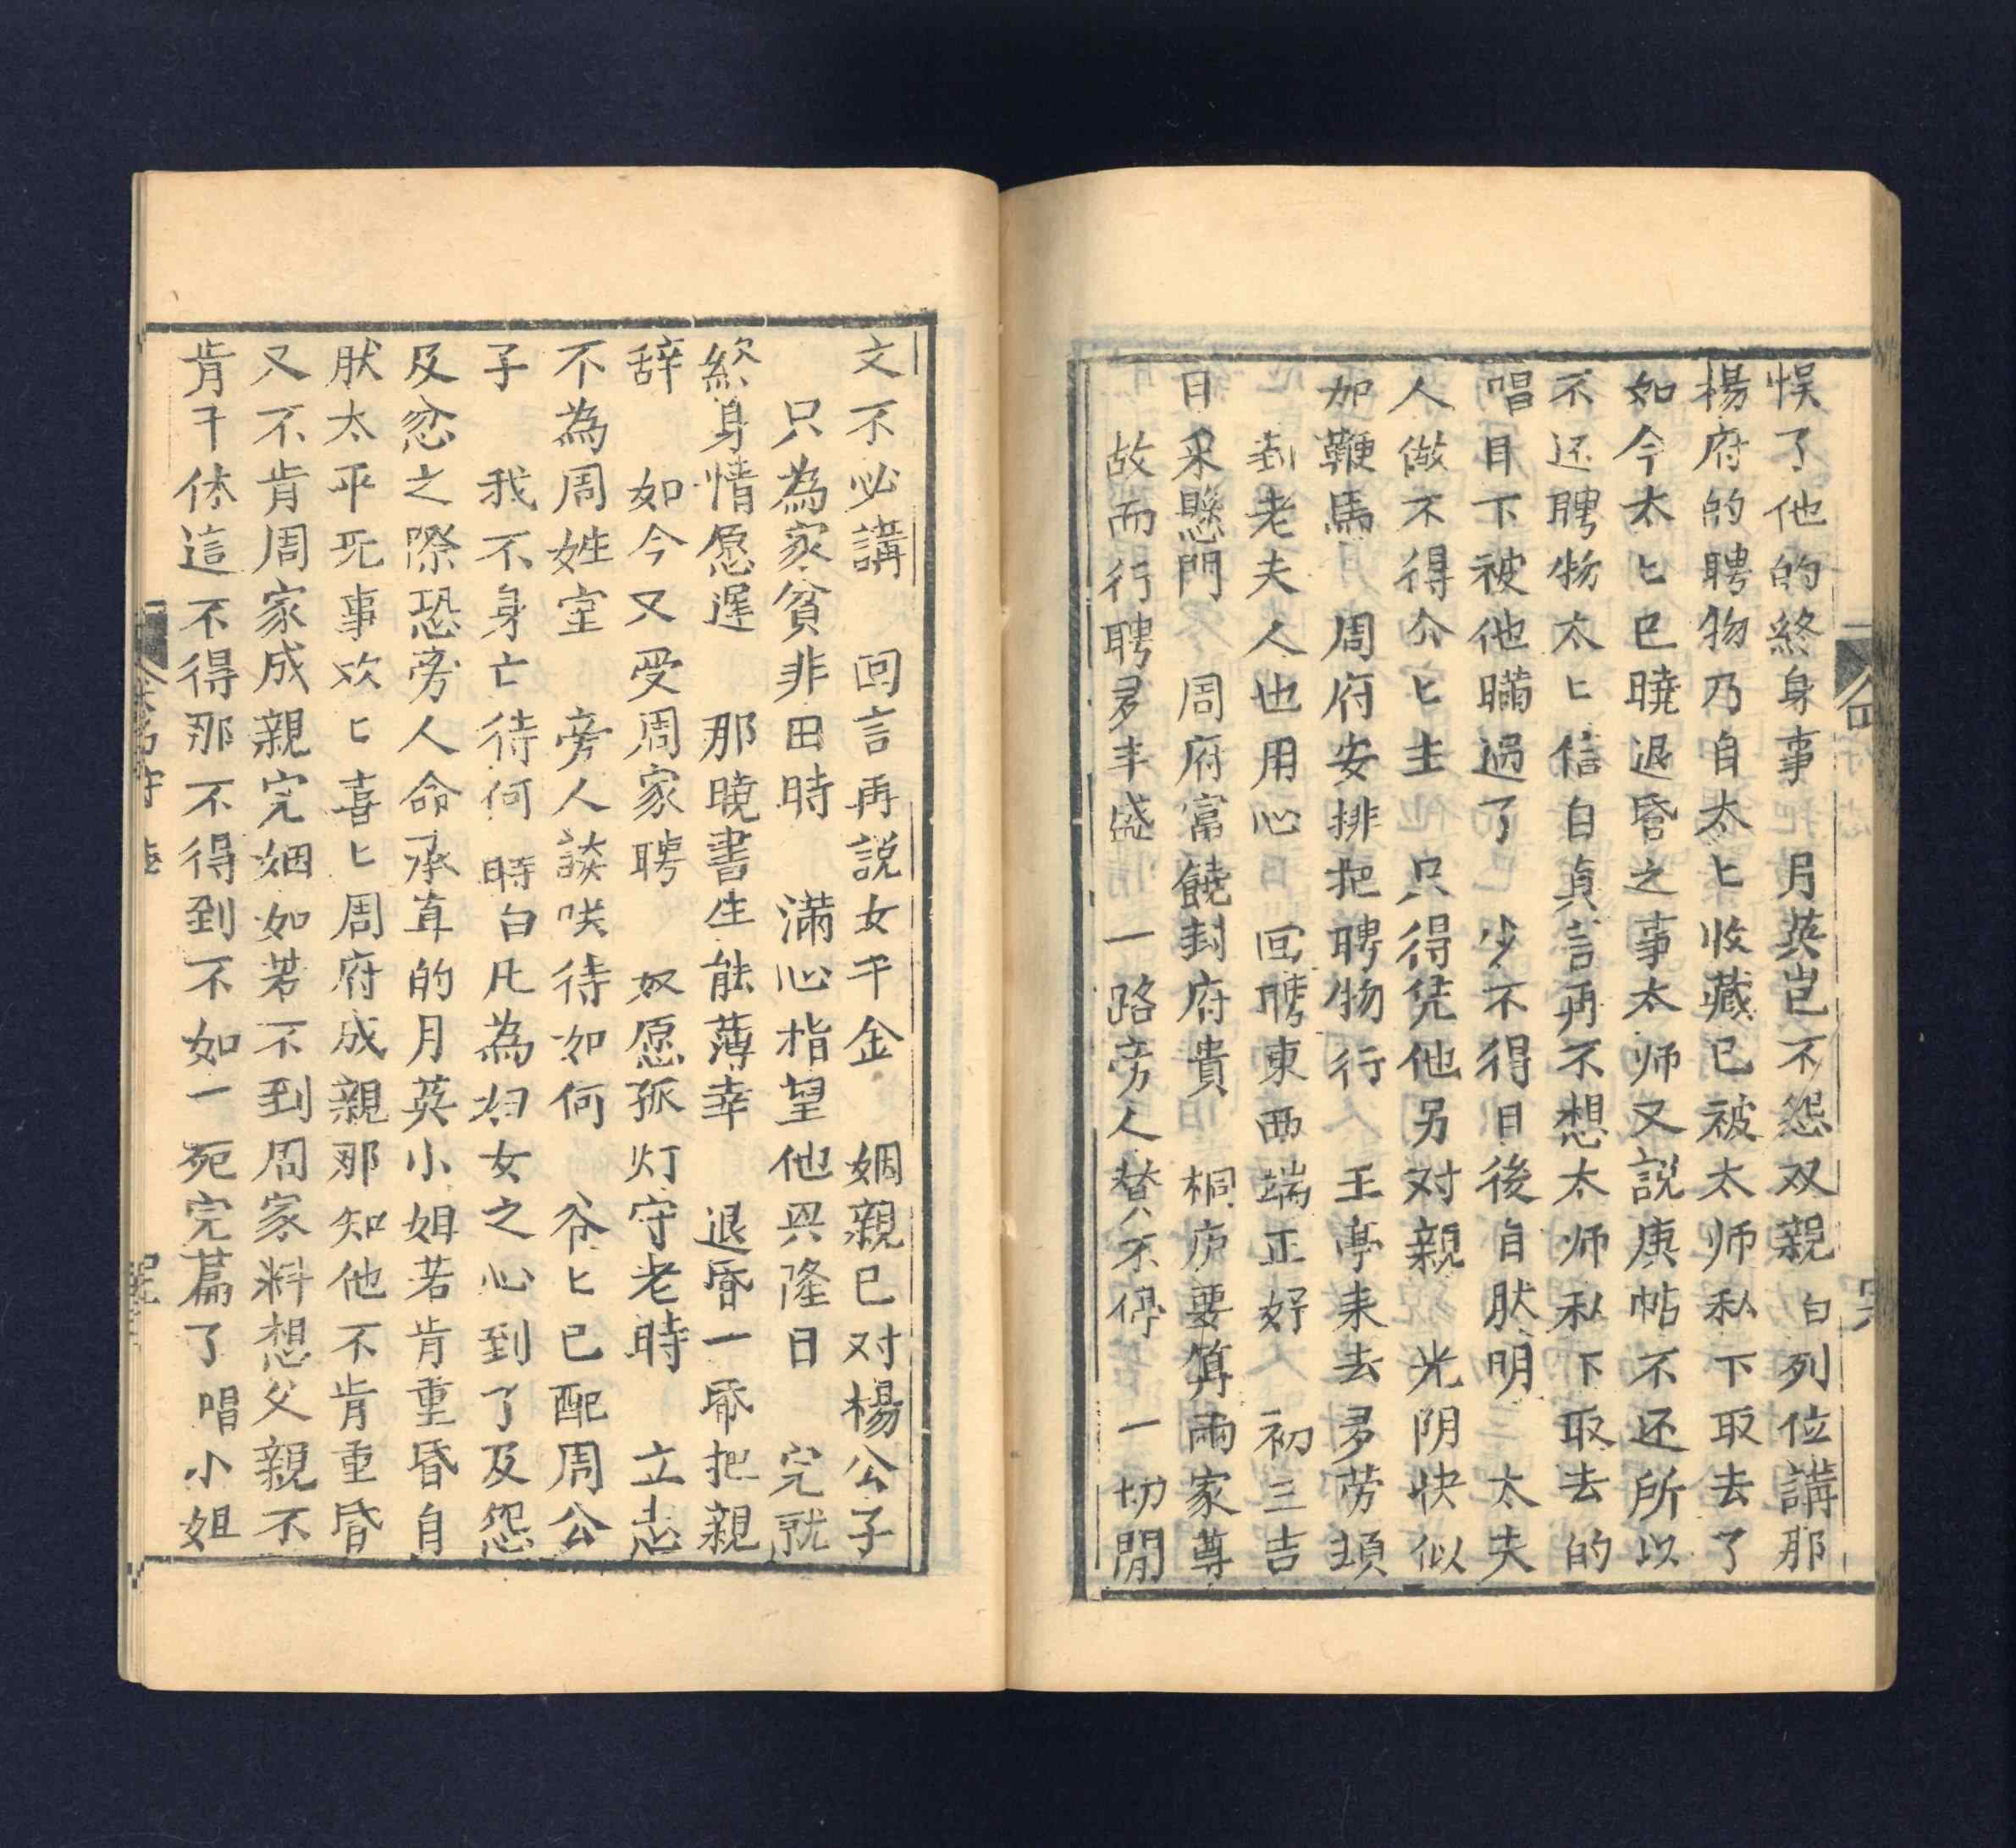 悞了他的終身事　月英岂不怨双親　白列位講那
楊府的聘物乃自太匕收藏已被太师私下取去了
如今太匕已曉退昏之事太师又説庚帖不还所以
不还聘物太匕信自真言再不想太师私下取去的
唱目下被他瞞過了　少不得日後自肰明　太夫
人做不得介匕主　只得凭他另对親　光阴快似
加鞭馬　周府安排把聘物行　王亭来去多劳頓
封老夫人也用心　回聘東西端正好　初三吉
日采懸門　周府富饒封府貴　桐庐要算兩家尊
故而行聘多丰盛　一路旁人賛不停　一切閒
文不必講　回言再説女千金　姻親已对楊公子
只為家貧非田時　滿心指望他興隆日　完就
終身情愿遲　那曉書生能薄幸　退昏一帋把親
辞　如今又受周家聘　奴愿孤灯守老時　立志
不為周姓室　旁人談咲待如何　爷匕已配周公
子　我不身亡待何時白凡為妇女之心到了及怨
及忿之際恐旁人命承直的月英小姐若肯重昏自
肰太平旡事欢匕喜匕周府成親那知他不肯重昏
又不肯周家成親完姻如若不到周家料想父親不
肯干休這不得那不得到不如一死完篇了唱小姐